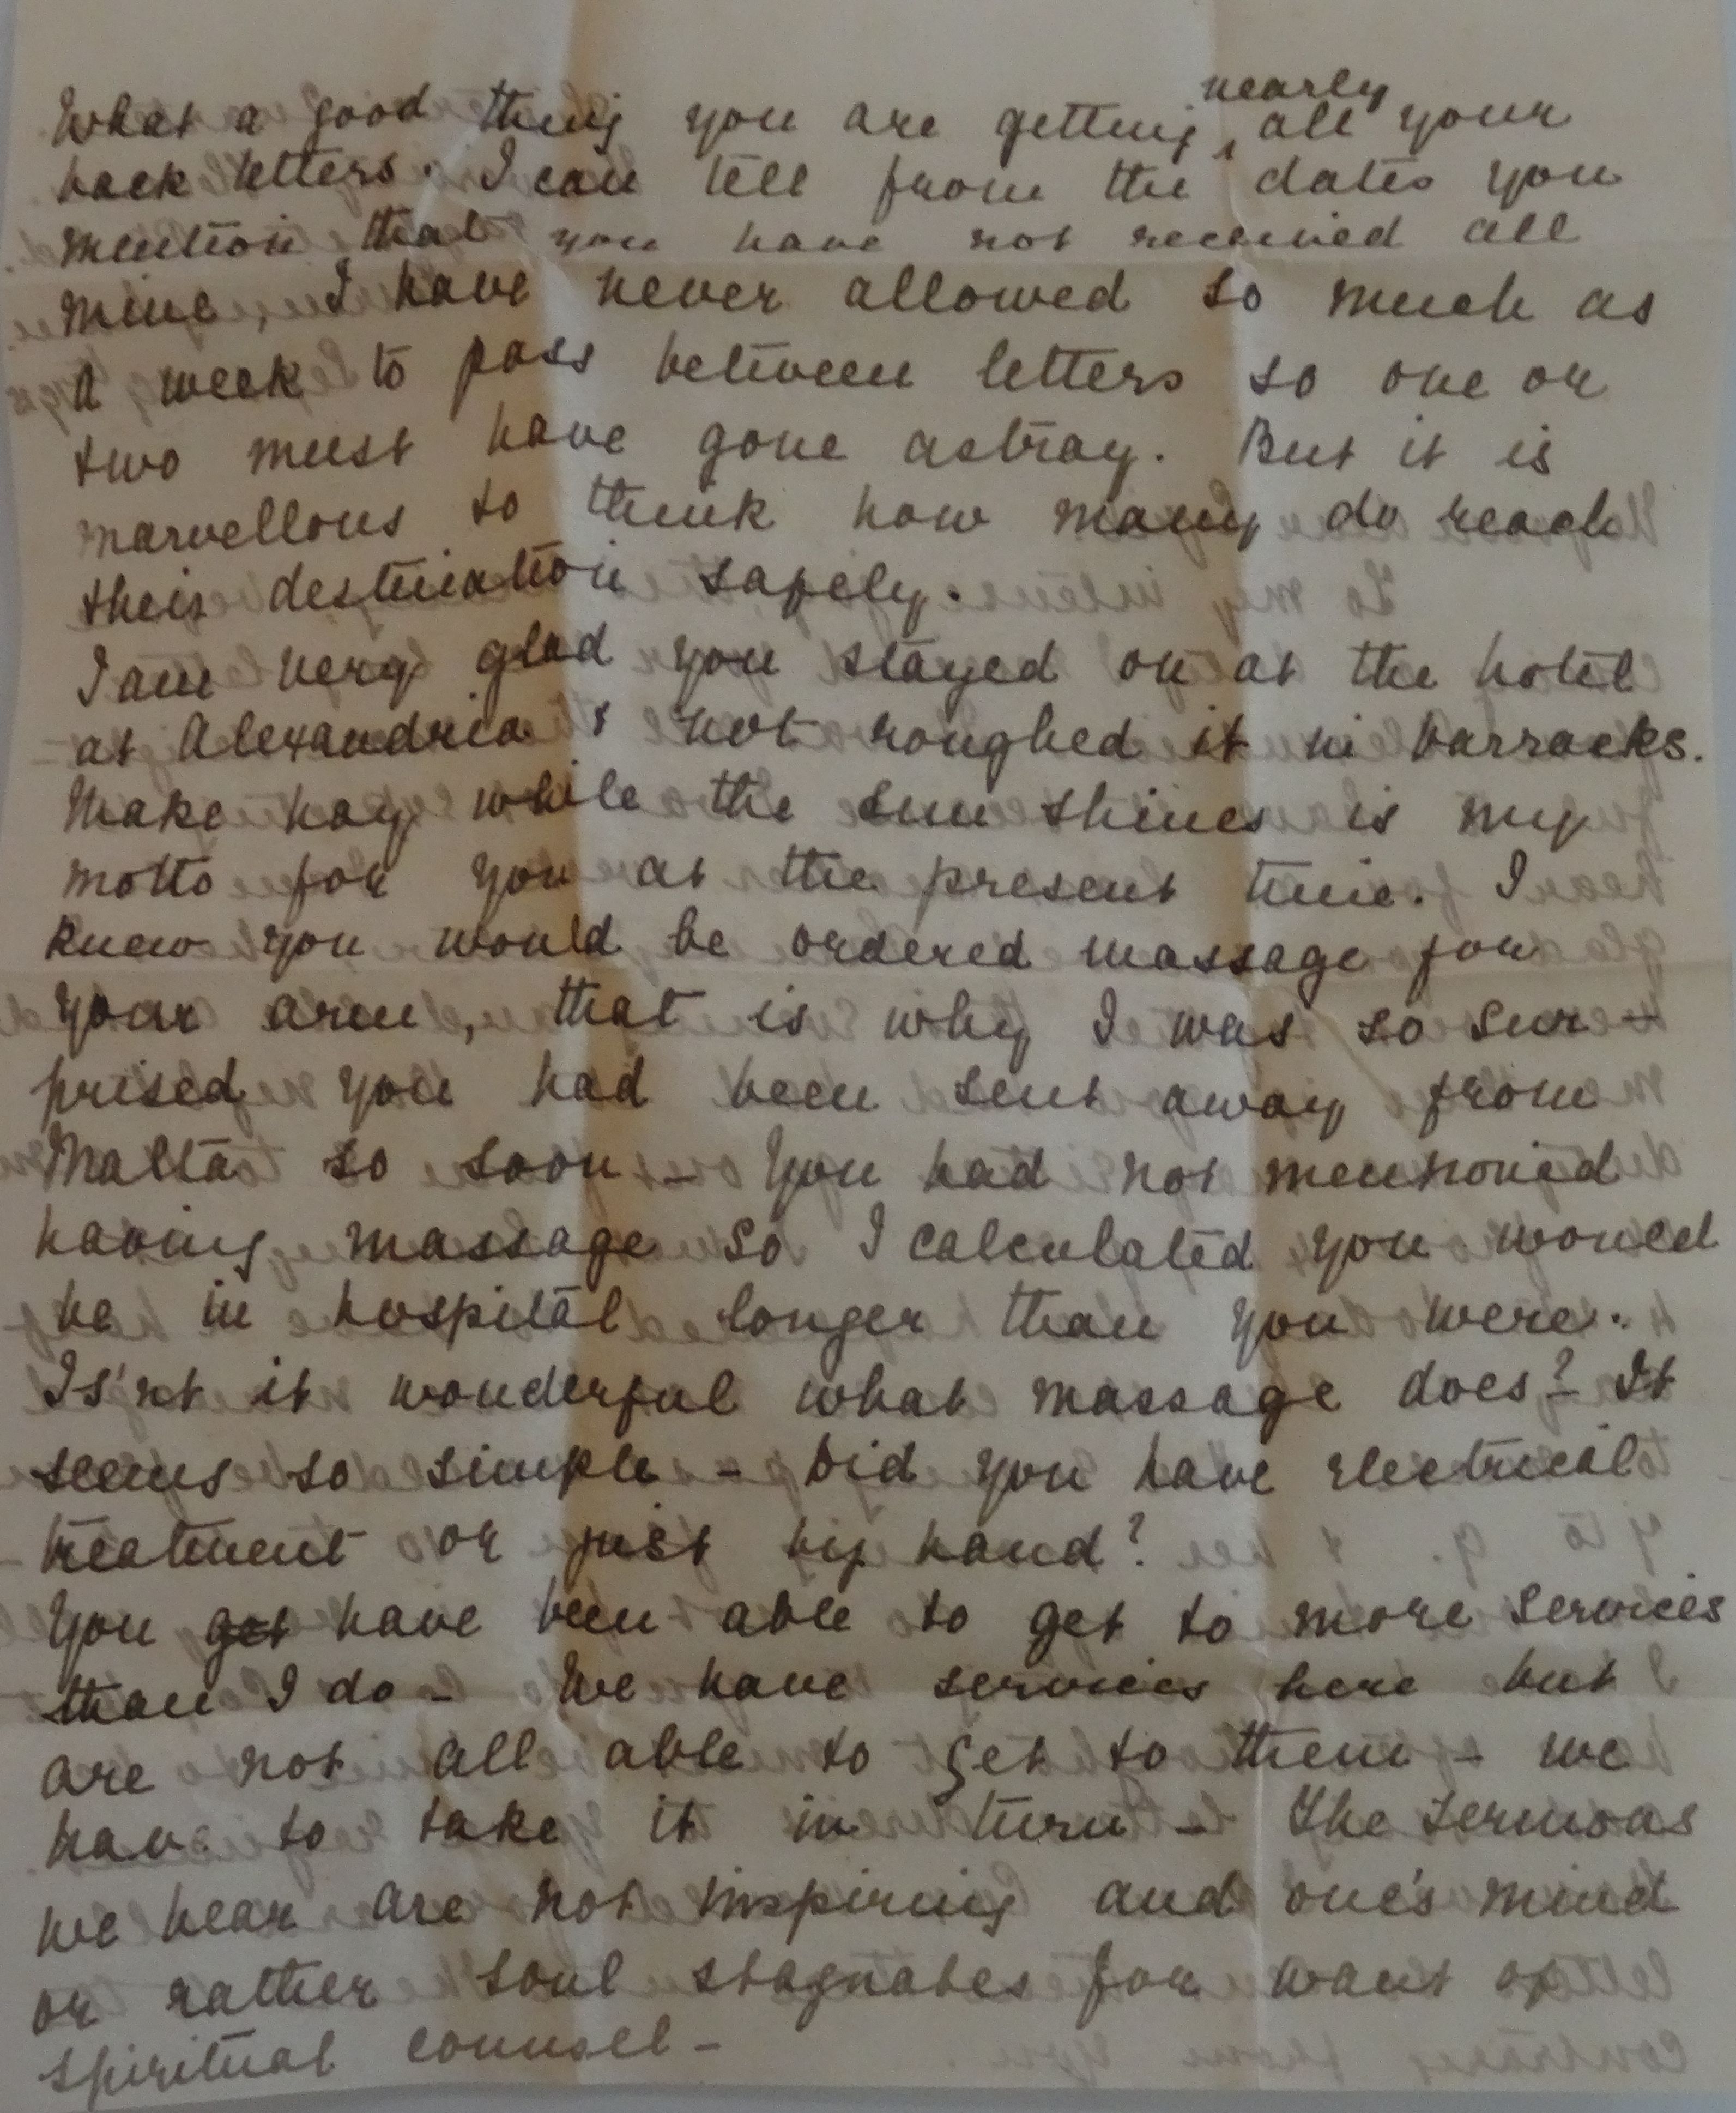 What a good thing you are getting nearly all your
back letters. I can tell from the dates you
mention that you have not received all
mine, I have never allowed so much as
a week to pass between letters so one or
two must have gone astray. But it is
marvellous to think how many do reach
their destination safely.
I am very glad you stayed on at the hotel
at Alexandria & not roughed it in barracks.
Make hay while the sun shines is my
motto for you at the present time. I
knew you would be ordered massage for
your arm, that is why I was so sur-
prised you had been sent away from
Malta so soon - You had not mentioned
having massage so I calculated you would
be in hospital longer than you were.
Is'nt it wonderful what massage does? - It
seems so simple - Did you have electrical
treatment or just by hand?
You get have been able to get to more services
than I do - We have services here but
are not all able to get to them - we
have to take it in turn - The sermons
we hear are not inspiring and one's mind
or rather soul stagnates for want of
spiritual counsel -